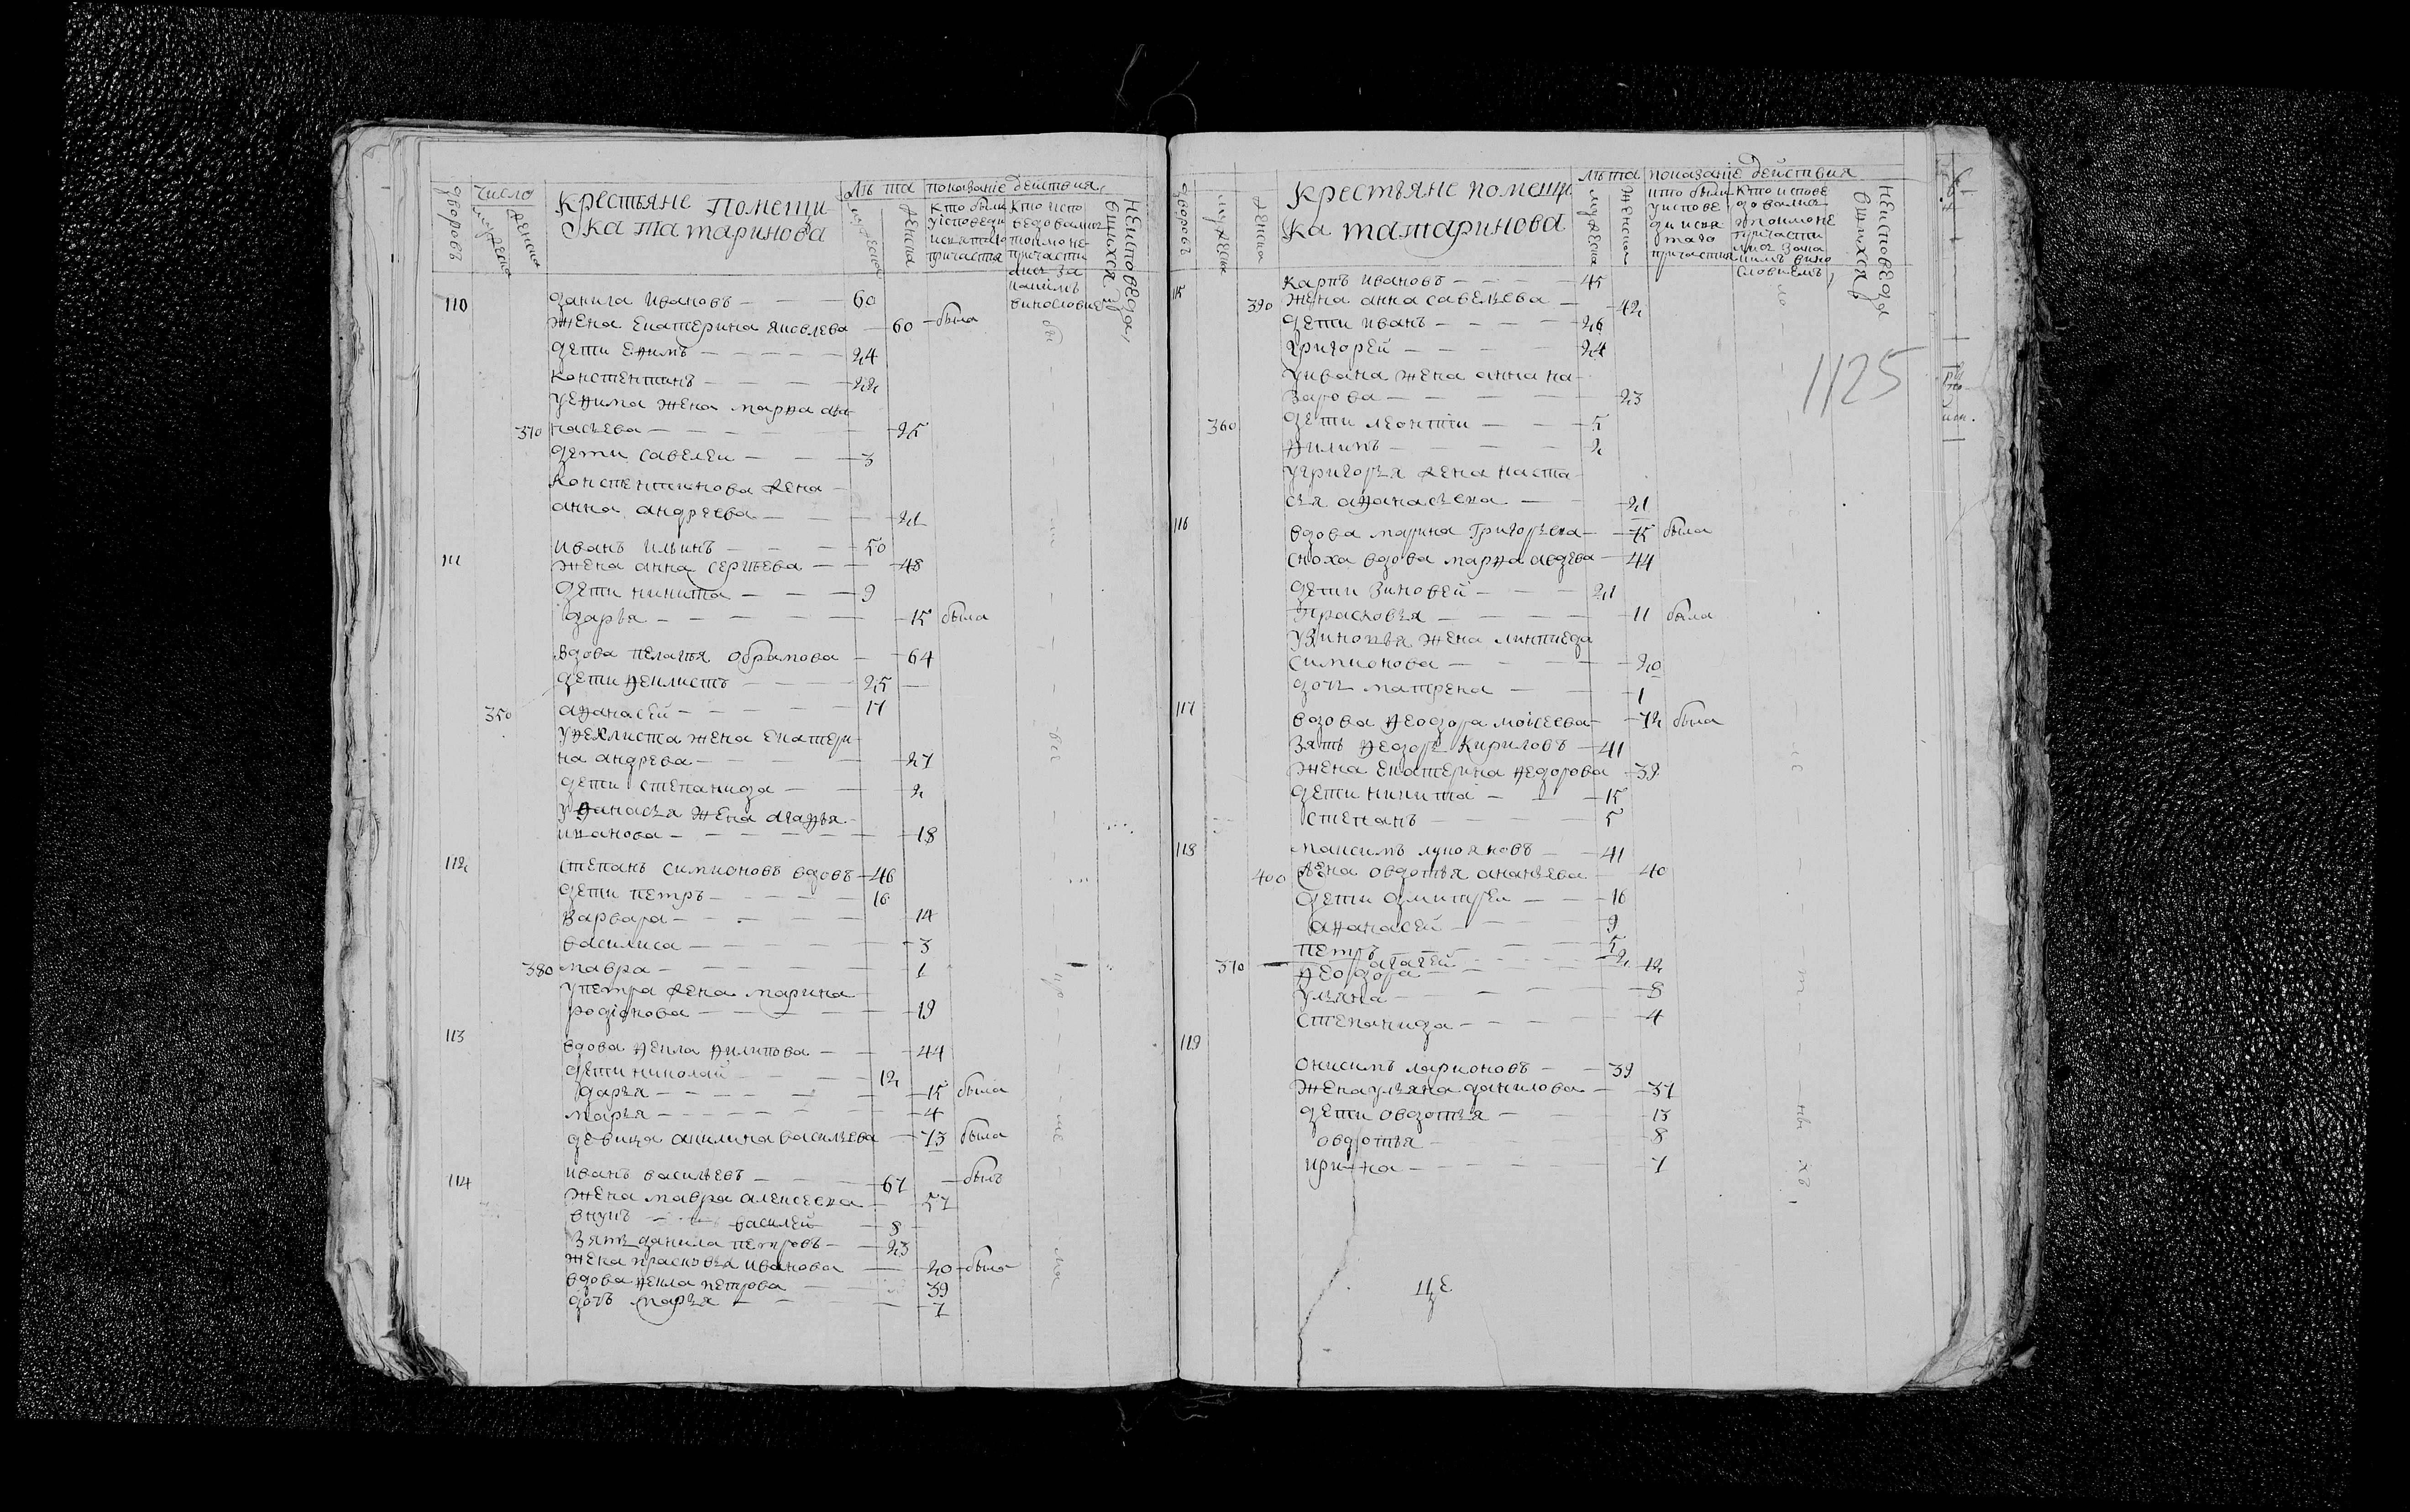 дворовъ
число
мужеска
женска
крестьяне помещи
ка татаринова
лѣта
мужеска
женска
показаніе действия
кто были
уисповеди
исвятаго
причастия
кто испо
ведовалис
токмоне
причасти
лися за
каким
винословие
неисповеда
вшихся
110 данила ивановъ 60
жена екатерина яковлева 60 была
дети ефимъ 24
константинъ 22
уефима жена марфа афа
370 насьева 25
дети савелеи 3
константинова жена
анна андреева 21
иванъ ильинъ 50
111 жена анна сергѣева 48
дети никита 9
дарья 15 была
вдова пелагея обрамова 64
дети феклистъ 25
350 афанасей 17
уфеклиста жена екатери
на андрева 27
дети степанида 2
уфанасья жена агафья
иванова 18
112 степанъ симионовъ вдовъ 46
дети петръ 16
варвара 14
василиса 3
380 мавра 1
упетра жена марина
родіонова 19
113
вдова фекла филипова 44
дети николай 12
дарья 15 была
марья 4
девица акилина васильева 73 была
114 иванъ васильевъ 67 былъ
жена мавра алексеева 57
внукъ василей 8
зять данила петровъ 23
жена прасковья иванова 20 была
вдова фекла петрова 39
дочь марья 7
дворовъ
мужеска
женска
крестьяне помещи
ка татаринова
лѣта
мужеска
женска
показаніе действия
кто были
уиспове
ди исвя
таго
причастия
кто испове
довалися
токмоне
причасти
лися зака
кимъ вино
словиемъ
неисповеда
вшихся
115 карпъ ивановъ 45
390 жена анна савельева 42
дети иванъ 26
григорей 24
уивана жена анна на
зарова 23
360 дети леонтіи 5
филипъ 2
угригорья жена наста
сья афанасьева 21
116
вдова марина григорьева 75 была
сноха вдова марфа авдева 44
дети зиновей 21
прасковья 11 была
узиновья жена
симионова 20
дочь матрена 1
117 вдова феодора моисеева 72 была
зять феодоръ кириловъ 41
жена екатерина федорова 39
дети никита 15
степанъ 5
118 максимъ лукояновъ 41
400 жена овдотья ананьева 40
дети дмитреи 16
афанасей 9
петръ 5
агагей 2
370 феодора 12
ульяна 8
степанида 4
119
онисимъ ларионовъ 39
жена ульяна данилова 37
дети овдотья 13
овдотья 8
ирина 7
1125